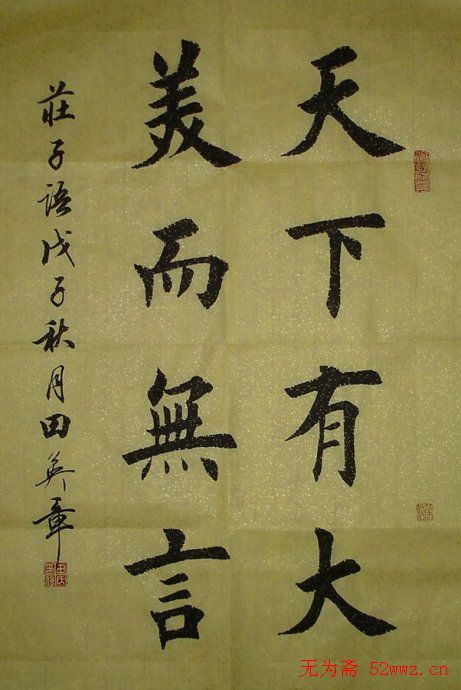 天下有大
美而無言
莊子语戊子秋月田英章
无为斋 52wwz.cn